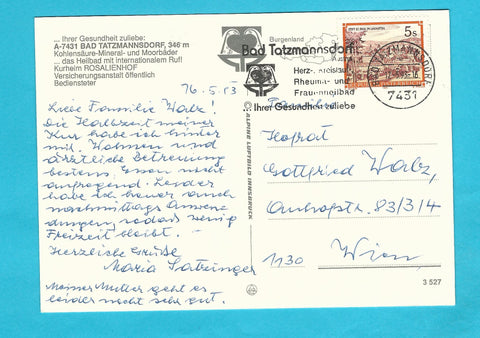 ... Ihrer Gesundheit zuliebe:
A-7431 BAD TATZMANNSDORF, 346 m
Kohlensäure-Mineral- und Moorbäder
... das Heilbad mit internationalem Ruf!
Kurheim ROSALIENHOF
Versicherungsanstalt öffentlich
Bediensteter
16.5.
Liebe Familie Walz!
Die Halbzeit meiner
Kur habe ich hinter
mir. Wohnen und
ärztliche Betreuung
bestens. Essen nicht
aufregend. Leider
habe ich heuer auch
nachmittags Anwen-
dungen, sodass wenig
Freizeit bleibt.
Herzliche Grüße
Maria
Meiner Mutter geht es
leider nicht sehr gut.
ALPINE LUFTBILD INNSBRUCK
Burgenland
Bad Tatzmannsdorf
Herz-, Kreislauf
Rheuma- und
Frauenheilbad
...Ihrer Gesundheit zuliebe
5s
BAD TATZMANNSDORF
7431
Familie
Hofrat
Gottfried Walz,
83/3/4
1130 Wien
3 527